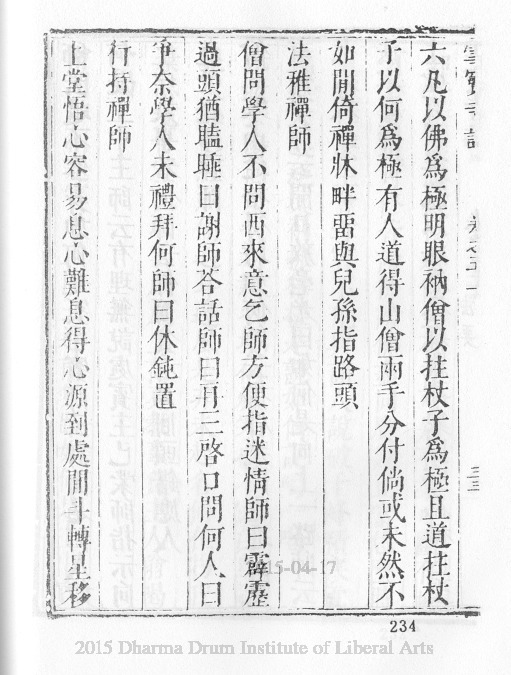 雪竇寺誌 卷之五 三三
六凡以佛爲極明眼衲僧以拄杖子爲極且道拄杖
子以何爲極有人道得山僧兩手分付倘或未然不
如閒倚禪牀畔留與兒孫指路頭
法雅禪師
僧問學人不問西來意乞師方便指迷情師曰霹靂
過頭猶瞌睡曰謝師答話師曰再三啓口問何人曰
爭奈學人未禮拜何師曰休鈍置
行持禪師
上堂悟心容易息心難息得心源到處閒斗轉星移
234
2015-04-17
2015 Dharma Drum Institute of Liberal Arts